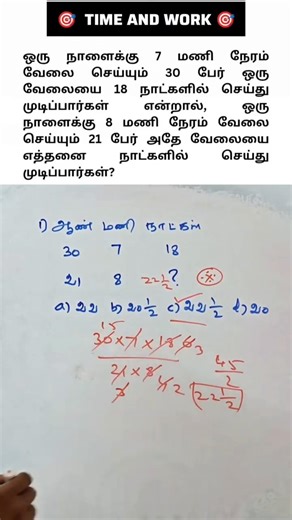 🎯 TIME AND WORK 🎯
ஒரு நாளைக்கு 7 மணி நேரம்
வேலை செய்யும் 30 பேர் ஒரு
வேலையை 18 நாட்களில் செய்து
முடிப்பார்கள் என்றால், ஒரு
நாளைக்கு 8 மணி நேரம் வேலை
செய்யும் 21 பேர் அதே வேலையை
எத்தனை நாட்களில் செய்து
முடிப்பார்கள்?
1) ஆண் மணி நாட்கள்
30 7 18
21 8 22 1/2 ?
a) 22 b) 20 1/2 c) 22 1/2 d) 20
15
30 x 7 x 18 6 3
21 x 8 4 2
3
45/2
22 1/2